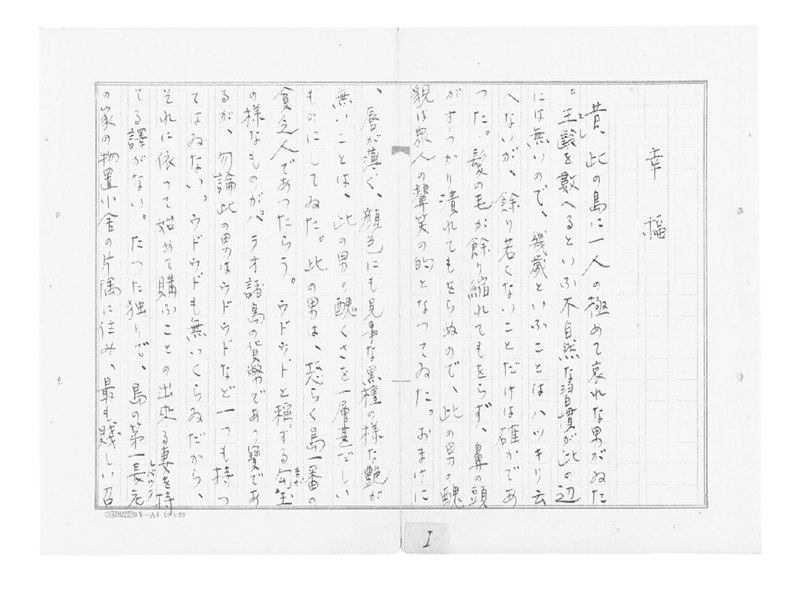 幸福
昔、此の島に一人の極めて哀れな男がゐた
。年齢を數へるといふ不自然な習慣が此の辺
とし
には無いので、幾歳といふことはハツキリ云
へないが、餘り若くないことだけは確かであ
つた。髪の毛が餘り縮れてもをらず、鼻の頭
がすつかり潰れてもをらぬので、此の男の醜
貌は衆人の顰笑の的となつてゐた。おまけに
、唇が薄く、顔色にも見事な黒檀の様な艶が
無いことは、此の男の醜くさを一層甚だしい
ものにしてゐた。此の男は、恐らく島一番の
貧乏人であつたらう。ウドウドと稱する勾玉
まが
の様なものがパラオ諸島の貨幣であり寶であ
るが、勿論此の男はウドウドなど一つも持つ
てはゐない。ウドウドも無いくらゐだから、
それに依つて始めて購ふことの出来る妻を持
てる譯がない。たつた独りで、島の第一長老
ルバック
の家の物置小舎の片隅に住み、最も賎しい召
10×20
I